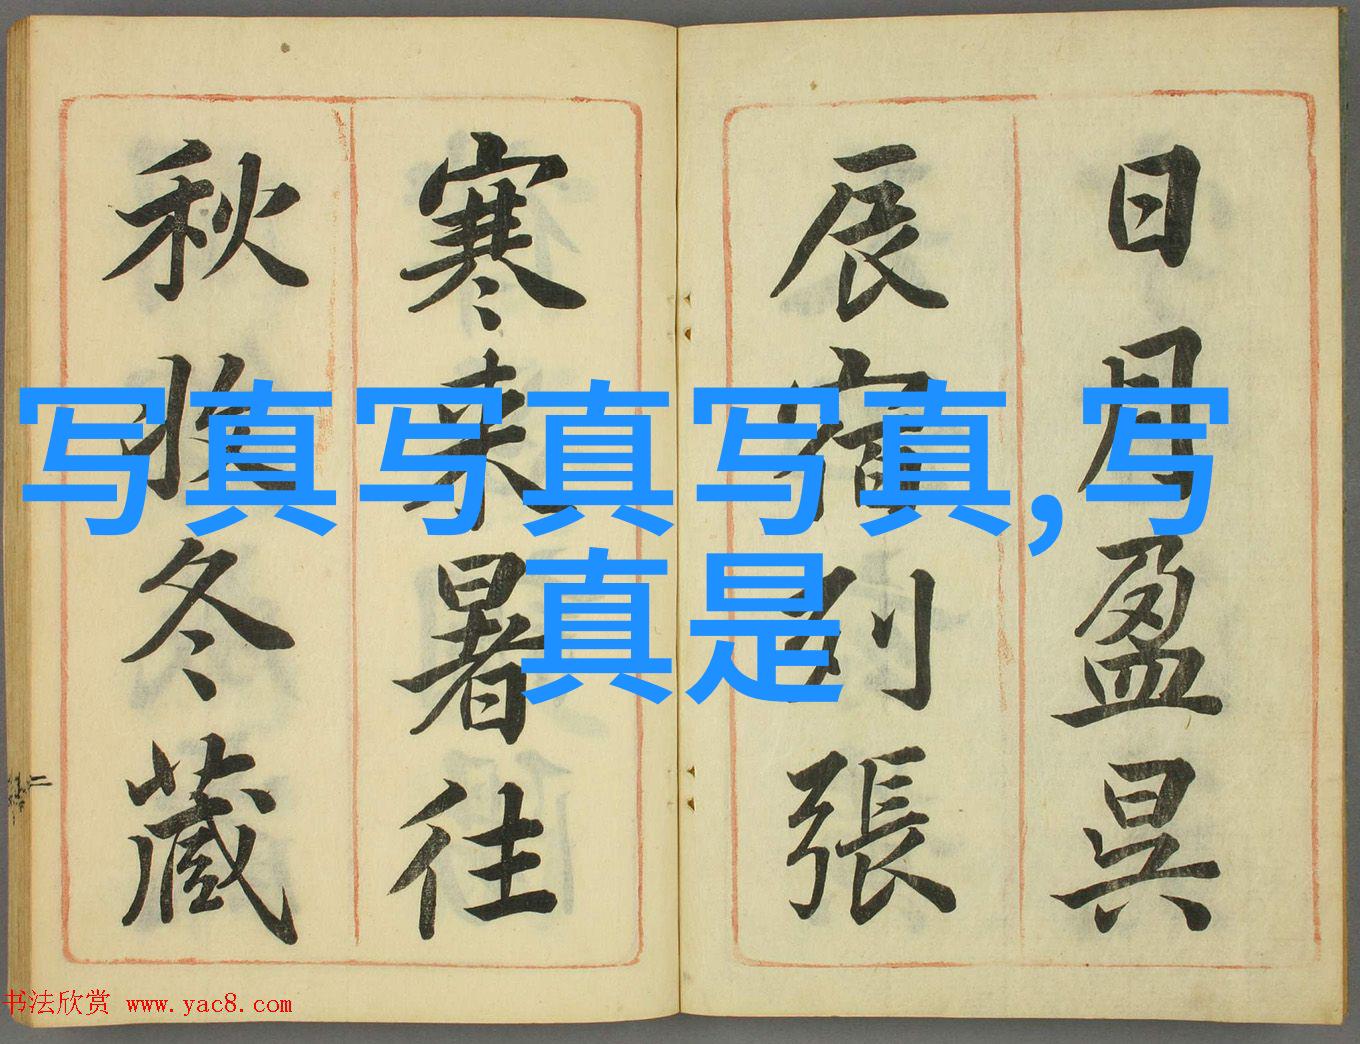 日月盈昃
辰宿列張
寒来暑往
秋收冬藏
写真写真写真,写
真是
书法欣赏 www.yac8.com